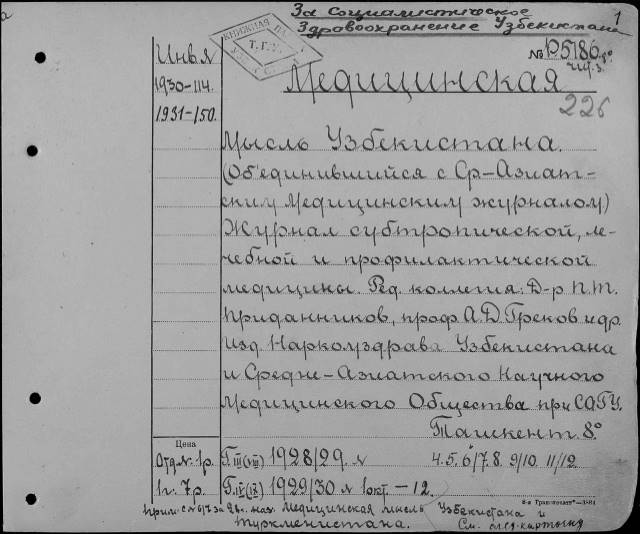 За социалистическое
Здравоохранение Узбекистана
1
КНИЖНАЯ
Т.Г.
№ Р5186
8°
чит. з.
Инв.№
1930-114.
1931-150.
Медицинская
226
Мысль Узбекистана.
(Об'единившийся с Ср-Азиат-
ским медицинским журналом)
Журнал субтропической, ле-
чебной и профилактической
медицины. Ред. коллегия: Д-р П.Т.
Приданников, проф. А.Д. Греков и др.
Изд. Наркомздрава Узбекистана
и Средне-Азиатского Научного
Медицинского Общества при САГУ.
Ташкент. 8°
Цена
Отд.№. 1р.
1г. 7р.
Г.III(VIII) 1928/29. № 4.5.6/7.8. 9/10. 11/12.
Г.IV(IX) 1929/30 № 1 окт. — 12.
6-я Транспечати — 3581
Прим. с № 6/7 за 28г. наз. Медицинская мысль Узбекистана и
Туркменистана.
См. след. карточку